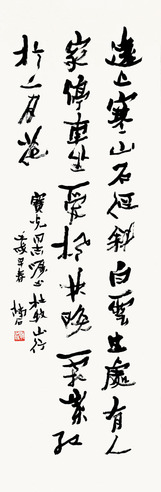 遠上寒山石徑斜白雲生處有人
家停車坐愛楓林晚霜葉紅
於二月花
同志 杜牧山行
早春